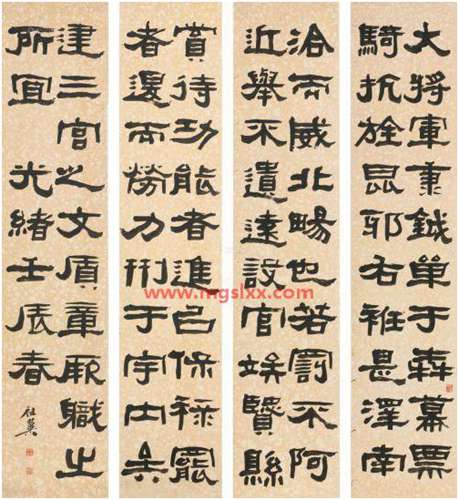 大將軍秉鉞單于犇幕票
騎抗旌昆邪右衽是澤南
洽而威北暢也若罰不阿
近舉不遺遠設官俟賢縣
賞待功能者進㠯保祿罷
者退而勞力刑于宇內矣
建三宮之文質章厥職之
所宜
光緒壬辰春
www.mgslxx.com